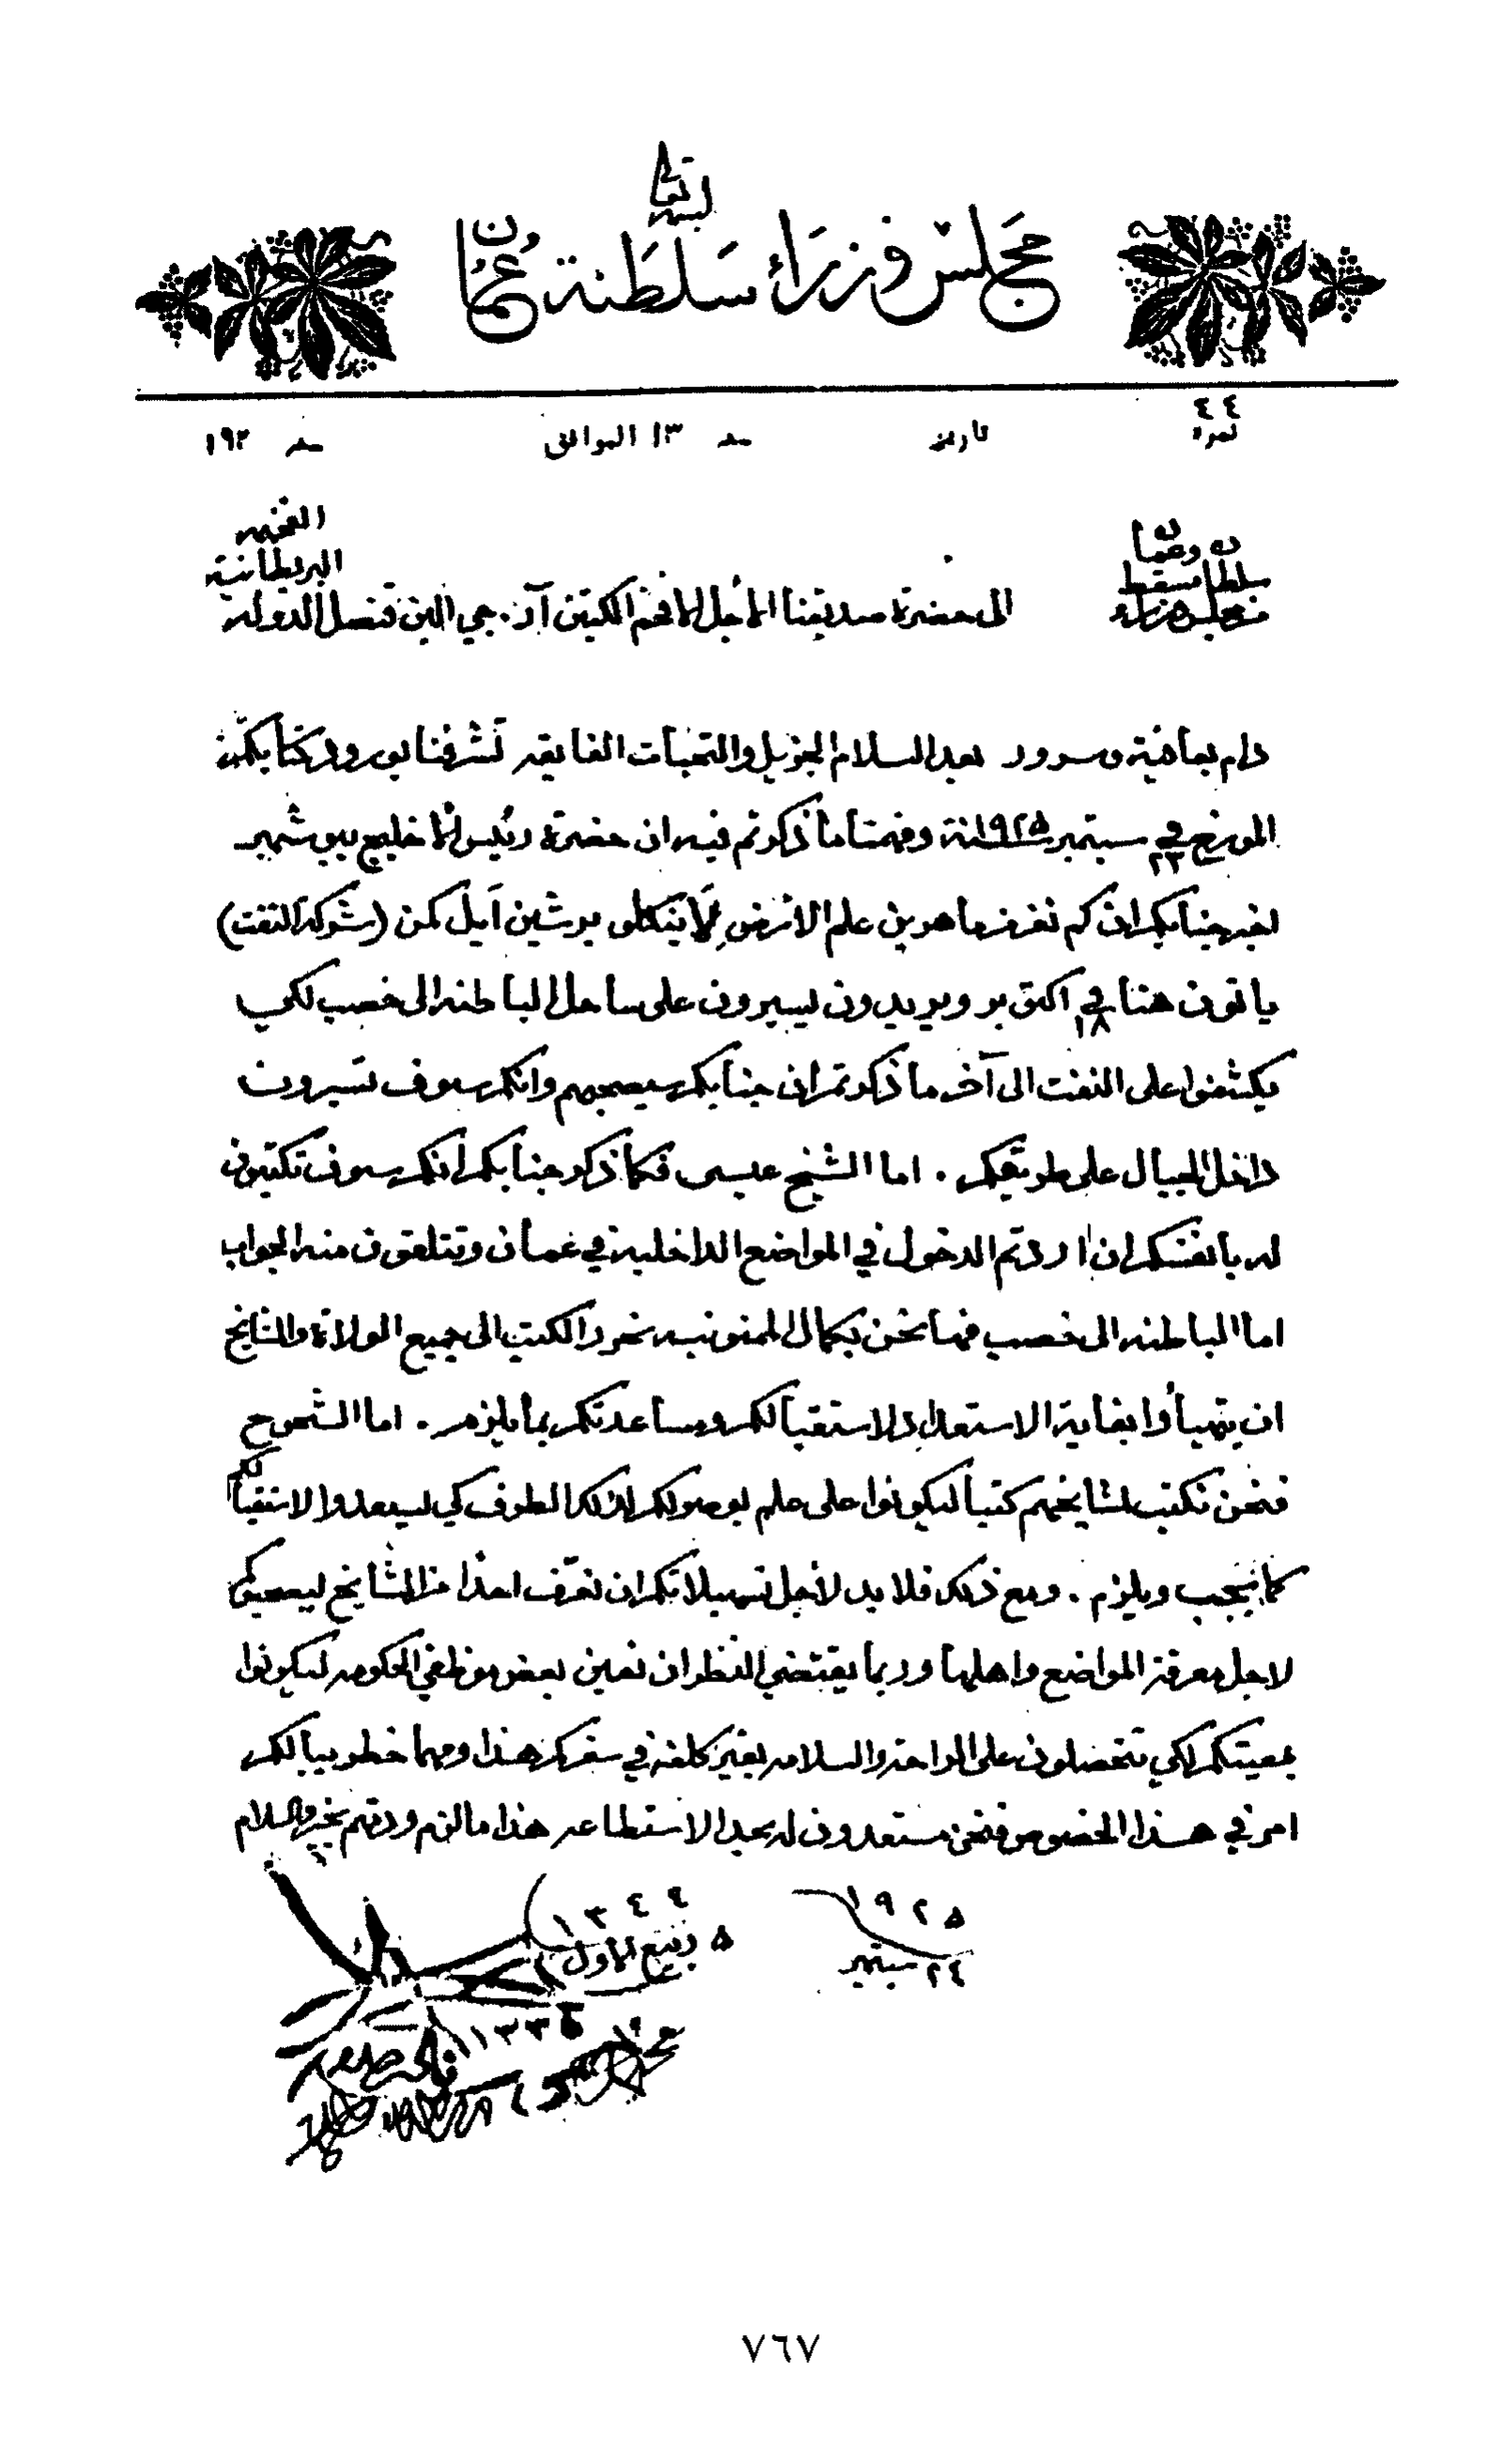 بسمه تعالى
مجلس وزراء سلطنة عمان
نمرة ٤٤ تاريخ سنة ١٣ الموافق سنة ١٩٢
من مجلس وزراء سلطان مسقط وعمان
الى حضرة صديقنا الأجل الافخم الكپتن آر. جي الين قنصل الدولة البريطانية الفخيمه
دام بعافية وسرور بعد السلام الجزيل والتحيات الفايقه تشرفنا بورود كتابكم
المورخ في ٢٣ سبتمبر سنة ١٩٢٥ وفهمنا ما ذكرتم فيه ان حضرة رئيس الخليج ببوشهر
اخبر جنابكم ان كم نفر ماهرين علم الارض لأينكلو برشين آيل كمن (شركة النفت)
ياتون هنا في ١٨ اكتوبر ويريدون يسيرون على ساحل الباطنه الى خصب لكي
يكشفوا على النفت الى آخر ما ذكرتم ان جنابكم سيصحبهم وانكم سوف تسيرون
داخل الجبال على طريقكم. اما الشيخ عيسى فكما ذكر جنابكم انكم سوف تكتبون
له بانفسكم ان اردتم الدخول في المواضع الداخلية في عمان وتتلقون منه الجواب
اما الباطنه الى خصب فها نحن بكمال الممنونيه نحرر الكتب الى جميع الولاة والمشايخ
ان يتهيأوا بغاية الاستعداد لاستقبالكم ومساعدتكم بما يلزم. اما الشحوح
فنحن نكتب لمشايخهم كتبا ليكونوا على علم بوصولكم لذلك الطرف كي يستعدوا لاستقبالكم
كما يجب ويلزم. ومع ذلك فلا بد لأجل تسهيلاتكم ان نعرف احدا من المشايخ ليصحبكم
لاجل معرفة المواضع واهلها وربما يقتضي النظر ان نعين بعض موظفي الحكومه ليكونوا
بمعيتكم لكي تتحصلون على الراحة والسلامه بغير كلفة في سفركم هذا ومهما خطر ببالكم
امر في هذا الخصوص فنحن مستعدون له بحد الاستطاعه هذا ما لزم ودمتم بخير والسلام
١٩٢٥
٢٤ سبتمبر
١٣٤٤
٥ ربيع الاول
٧٦٧